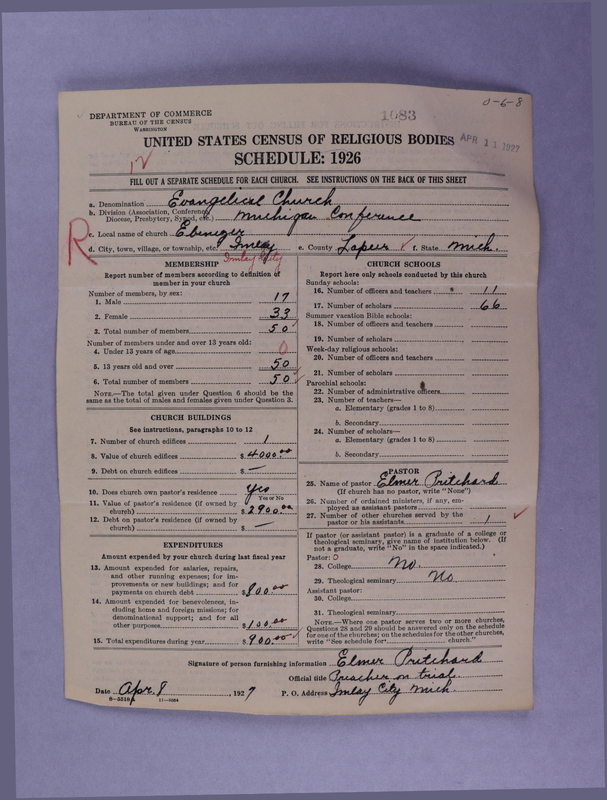 0-6-8
DEPARTMENT OF COMMERCE
BUREAU OF THE CENSUS
WASHINGTON
1083
APR 11 1927
UNITED STATES CENSUS OF RELIGIOUS BODIES
SCHEDULE: 1926
FILL OUT A SEPARATE SCHEDULE FOR EACH CHURCH. SEE INSTRUCTIONS ON THE BACK OF THIS SHEET
a. Denomination Evangelical Church
b. Division (Association, Conference, Diocese, Presbytery, Synod, etc.) Michigan Conference
R
c. Local name of church Ebenezer
d. City, town, village, or township, etc. Imlay e. County Lapeer f. State Mich.
Imlay City
MEMBERSHIP
Report number of members according to definition of
member in your church
Number of members, by sex:
1. Male 17
2. Female 33
3. Total number of members 50
Number of members under and over 13 years old:
4. Under 13 years of age 0
5. 13 years old and over 50
6. Total number of members 50
NOTE.—The total given under Question 6 should be the
same as the total of males and females given under Question 3.
CHURCH BUILDINGS
See instructions, paragraphs 10 to 12
7. Number of church edifices 1
8. Value of church edifices $ 4000.00
9. Debt on church edifices $ —
10. Does church own pastor's residence yes
Yes or No
11. Value of pastor's residence (if owned by
church) $ 2900.00
12. Debt on pastor's residence (if owned by
church) $ —
EXPENDITURES
Amount expended by your church during last fiscal year
13. Amount expended for salaries, repairs,
and other running expenses; for im-
provements or new buildings; and for
payments on church debt $ 800.00
14. Amount expended for benevolences, in-
cluding home and foreign missions; for
denominational support; and for all
other purposes $ 100.00
15. Total expenditures during year $ 900.00
CHURCH SCHOOLS
Report here only schools conducted by this church
Sunday schools:
16. Number of officers and teachers 11
17. Number of scholars 66
Summer vacation Bible schools:
18. Number of officers and teachers
19. Number of scholars
Week-day religious schools:
20. Number of officers and teachers
21. Number of scholars
Parochial schools:
22. Number of administrative officers
23. Number of teachers—
a. Elementary (grades 1 to 8)
b. Secondary
24. Number of scholars—
a. Elementary (grades 1 to 8)
b. Secondary
PASTOR
25. Name of pastor Elmer Pritchard
(If church has no pastor, write "None")
26. Number of ordained ministers, if any, em-
ployed as assistant pastors
27. Number of other churches served by the
pastor or his assistants 1
If pastor (or assistant pastor) is a graduate of a college or
theological seminary, give name of institution below. (If
not a graduate, write "No" in the space indicated.)
Pastor: 0
28. College No.
29. Theological seminary No.
Assistant pastor:
30. College
31. Theological seminary
NOTE.—Where one pastor serves two or more churches,
Questions 28 and 29 should be answered only on the schedule
for one of the churches; on the schedules for the other churches,
write "See schedule for church."
Signature of person furnishing information Elmer Pritchard
Official title Preacher on trial.
Date Apr. 8, 1927 P. O. Address Imlay City Mich.
11—6664